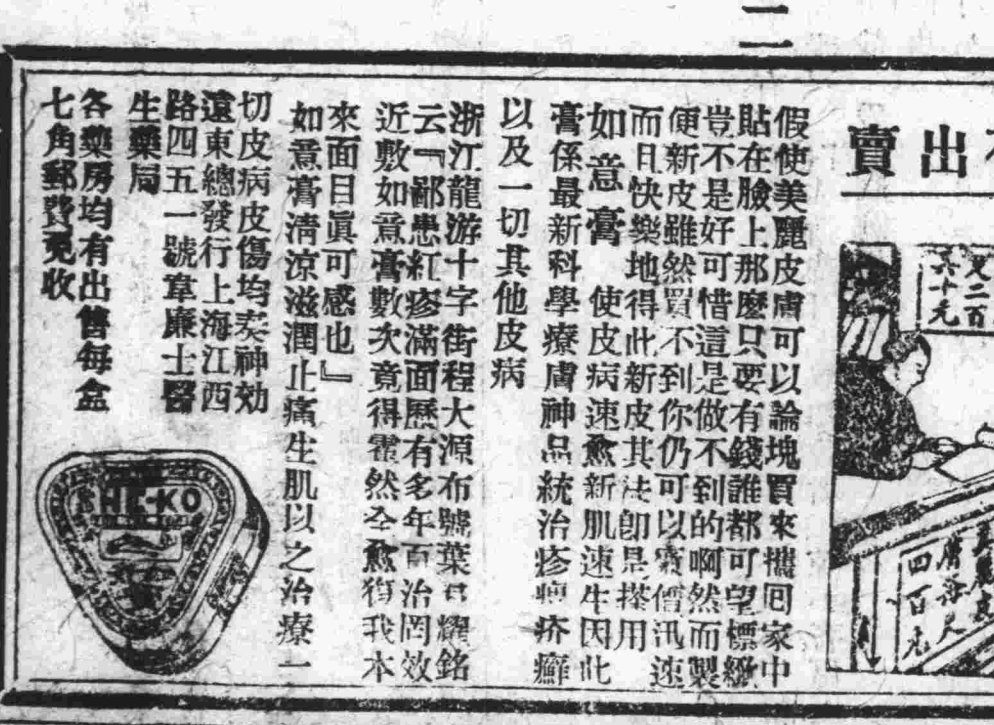 二
出賣
假使美麗皮膚可以論塊買來攜回家中
貼在臉上那麼只要有錢誰都可望標緻
豈不是好可惜這是做不到的啊然而製
便新皮雖然買不到你仍可以賽價迅速
而且快樂地得此新皮其法卽是搽用
如意膏 使皮病速愈新肌速生因此
膏係最新科學療膚神品統治疹疥癬
以及一切其他皮病
浙江龍游十字街程大源布號葉君耀銘
云『鄙患紅疹滿面歷有多年百治罔效
近敷如意膏數次竟得霍然全愈複我本
來面目眞可感也』
如意膏淸涼滋潤止痛生肌以之治療一
切皮病皮傷均奏神効
遠東總發行上海江西
路四五一號韋廉士醫
生藥局
各藥房均有出售每盒
七角郵費免收
HE-KO
二百
六十元
四百元